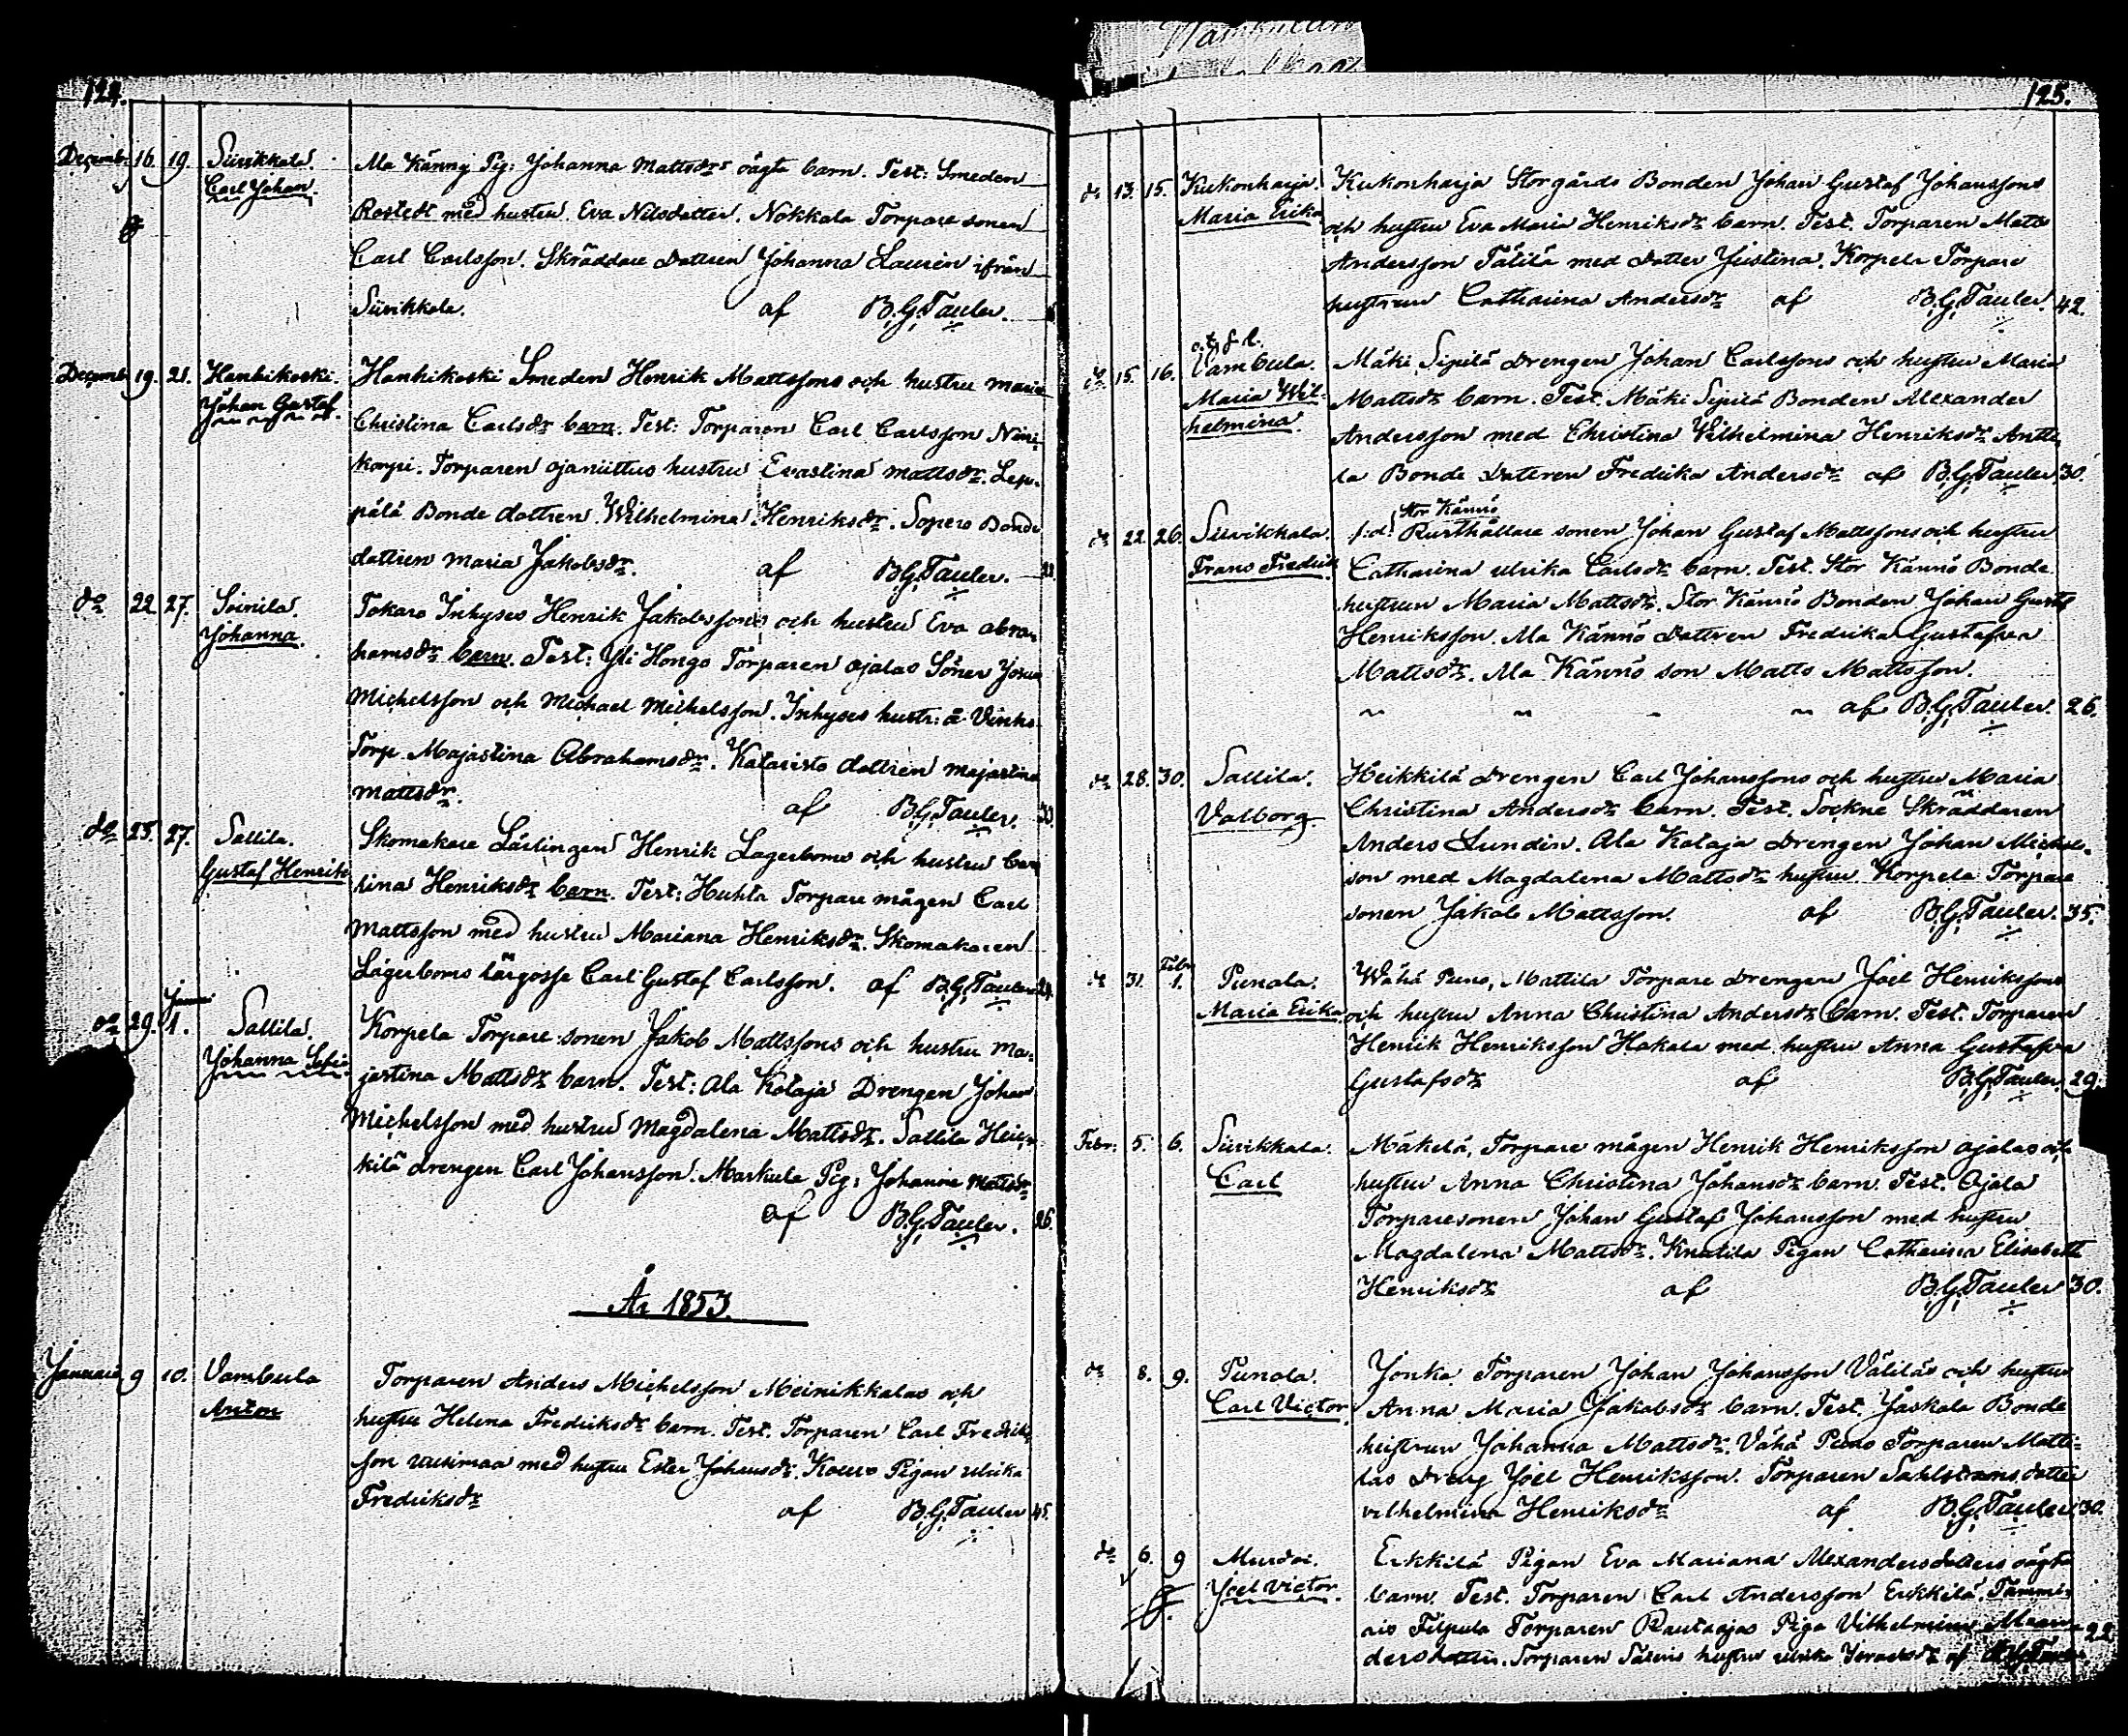 124.
Decemb. 16. 19. Suvikkala. Ala Känny Pig: Johanna Mattsdrs oägta barn. Test: Smeden
Carl Johan. Rostedt med hustru Eva Nilsdotter. Nokkala Torpare sonen
Carl Carlsson. Skräddare dottren Johanna Laurén ifrån
Suvikkala. af B.G.Tauler.
Decemb. 19. 21. Hanhikoski. Hanhikoski Smeden Henrik Mattssons och hustru Maria
Johan Gustaf. Christina Carlsdr barn. Test: Torparen Carl Carlsson Nini
korpi. Torparen Ojaniittus hustru Evastina Mattsdr. Lep-
pälä Bonde dottren Wilhelmina Henriksdr. Sopero Bonde
dottren Maria Jakobsdr. af B.G.Tauler.
do 22 27. Soinila. Tokaro Inhyses Henrik Jakobssons och hustru Eva Abra-
Johanna. hamsdr barn. Test: Yli Hongo Torparen Ojalas Söner Josua
Michelsson och Michael Michelsson. Inhyses hustr: å Vinks
Torp Majastina Abrahamsdr. Kataristo dottren Majastina
Mattsdr. af B.G.Tauler.
do 25. 27. Sallila. Skomakare Lärlingen Henrik Lagerboms och hustru Ca-
Gustaf Henrik rina Henriksdr barn. Test: Huhta Torpare mågen Carl
Mattsson med hustru Mariana Henriksdr. Skomakaren
Lagerboms lärgosse Carl Gustaf Carlsson. af B.G.Tauler
Januari
do 29. 1. Sallila. Korpela Torpare sonen Jakob Mattssons och hustru Ma-
Johanna Sofia. jastina Mattsdr barn. Test: Ala Kotaja Drengen Johan
Michelsson med hustru Magdalena Mattsdr. Sallila Heik-
kilä drengen Carl Johansson. Markula Pig: Johanna Mattsdr
af B.G.Tauler. 26.
År 1853.
Januari 9 10. Vambula Torparen Anders Michelsson Meinikkalas och
Anton hustru Helena Fredriksdr barn. Test. Torparen Carl Fredriks-
son Uusimaa med hustru Ester Johansdr. Kouvo Pigan Ulrika
Fredriksdr af B.G.Tauler 45.
125.
do 13. 15. Kukonharja. Kukonharja Storgårds Bonden Johan Gustaf Johanssons
Maria Erika och hustru Eva Maria Henriksdr barn. Test. Torparen Matts
Andersson Tätilä med dotter Justina. Korpela Torpare
hustrun Catharina Andersdr af B.G.Tauler. 42.
do 15. 16. Vambula. Mäki Sipilä Drengen Johan Carlssons och hustru Maria
Maria Wil- Mattsdr barn. Test. Mäki Sipilä Bonden Alexander
helmina. Andersson med Christina Wilhelmina Henriksdr. Antti
la Bonde Dotteren Fredrika Andersdr af B.G.Tauler. 30.
Stor Kännö
do 22 26. Suvikkala. f.d. Rusthållare sonen Johan Gustaf Mattssons och hustru
Frans Fredrik Catharina Ulrika Carlsdr barn. Test. Stor Kännö Bonde
hustrun Maria Mattsdr. Stor Kännö Bonden Johan Gustaf
Henriksson. Ala Kännö dottren Fredrika Gustafva
Mattsdr. Ala Kännö son Matts Mattsson.
af B.G.Tauler. 26.
do 28. 30. Sallila. Heikkilä drengen Carl Johanssons och hustru Maria
Valborg. Christina Andersdr barn. Test. Sockne Skräddaren
Anders Lundin. Ala Kotaja Drengen Johan Michels-
son med Magdalena Mattsdr hustru. Korpela Torpare
sonen Jakob Mattsson. af B.G.Tauler. 35.
Febr.
do 31. 1. Punola. Wähä Puno, Mattila Torpare drengen Joel Henrikssons
Maria Erika. och hustru Anna Christina Andersdr barn. Test. Torparen
Henrik Henriksson Hakala med hustru Anna Gustafva
Gustafsdr af B.G.Tauler. 29.
Febr. 5. 6. Suvikkala. Mäkelä, Torpare mågen Henrik Henriksson Ojalas och
Carl hustru Anna Christina Johansdr barn. Test. Ojala
Torparesonen Johan Gustaf Johansson med hustru
Magdalena Mattsdr. Knutila Pigan Catharina Elisabeth
Henriksdr af B.G.Tauler 30.
do 8. 9. Punola. Jonka Torparen Johan Johansson Väliläs och hustru
Carl Victor. Anna Maria Jakobsdr barn. Test. Jaskala Bonde
hustrun Johanna Mattsdr. Vähä Puno Torparen Matti-
las Dreng Joel Henriksson. Torparen Sahlstroms dotter
Vilhelmina Henriksdr af B.G.Tauler. 30.
do 6. 9 Murdoi. Erkkilä Pigan Eva Mariana Alexandersdotters oägta
Joel Victor. barn. Test. Torparen Carl Andersson Erkkilä. Tammi-
ais Filpula Torparen Rautaojas Piga Vilhelmina
dersdotter. Torparen hustru Ulrika af B.G.Tauler. 22